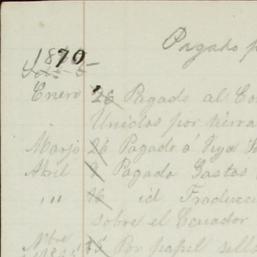 Pagado p
1870
Enero 26 Pagado al Co
Unidos por tierra
Marzo 24 Pagado á
Abril 9 Pagado Gastos
" 16 id Traducci
sobre el Ecuador
Nbre 15 Por papel sell